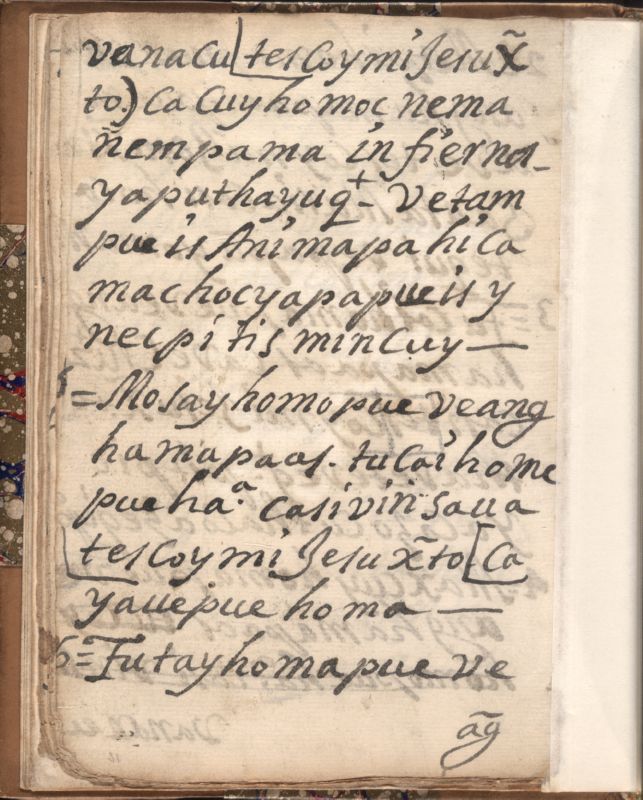 veana cu [tes Coymi Jesu x̃
to.) Ca Cuy homoc nema
ñem pama infierno_
ya puthayuq+_ vetam
pueis Animapa hi Ca
machocyapapueis y
necpitis min Cuy —
5 = Mosay homo pue ve ang
hamapaas. tu Cai home
pue haª. Casi viri saua
[tes Coy mi Jesu x̃to. [Ca
yaue pue homa —
6 = Tutay homa pue ve
ãg